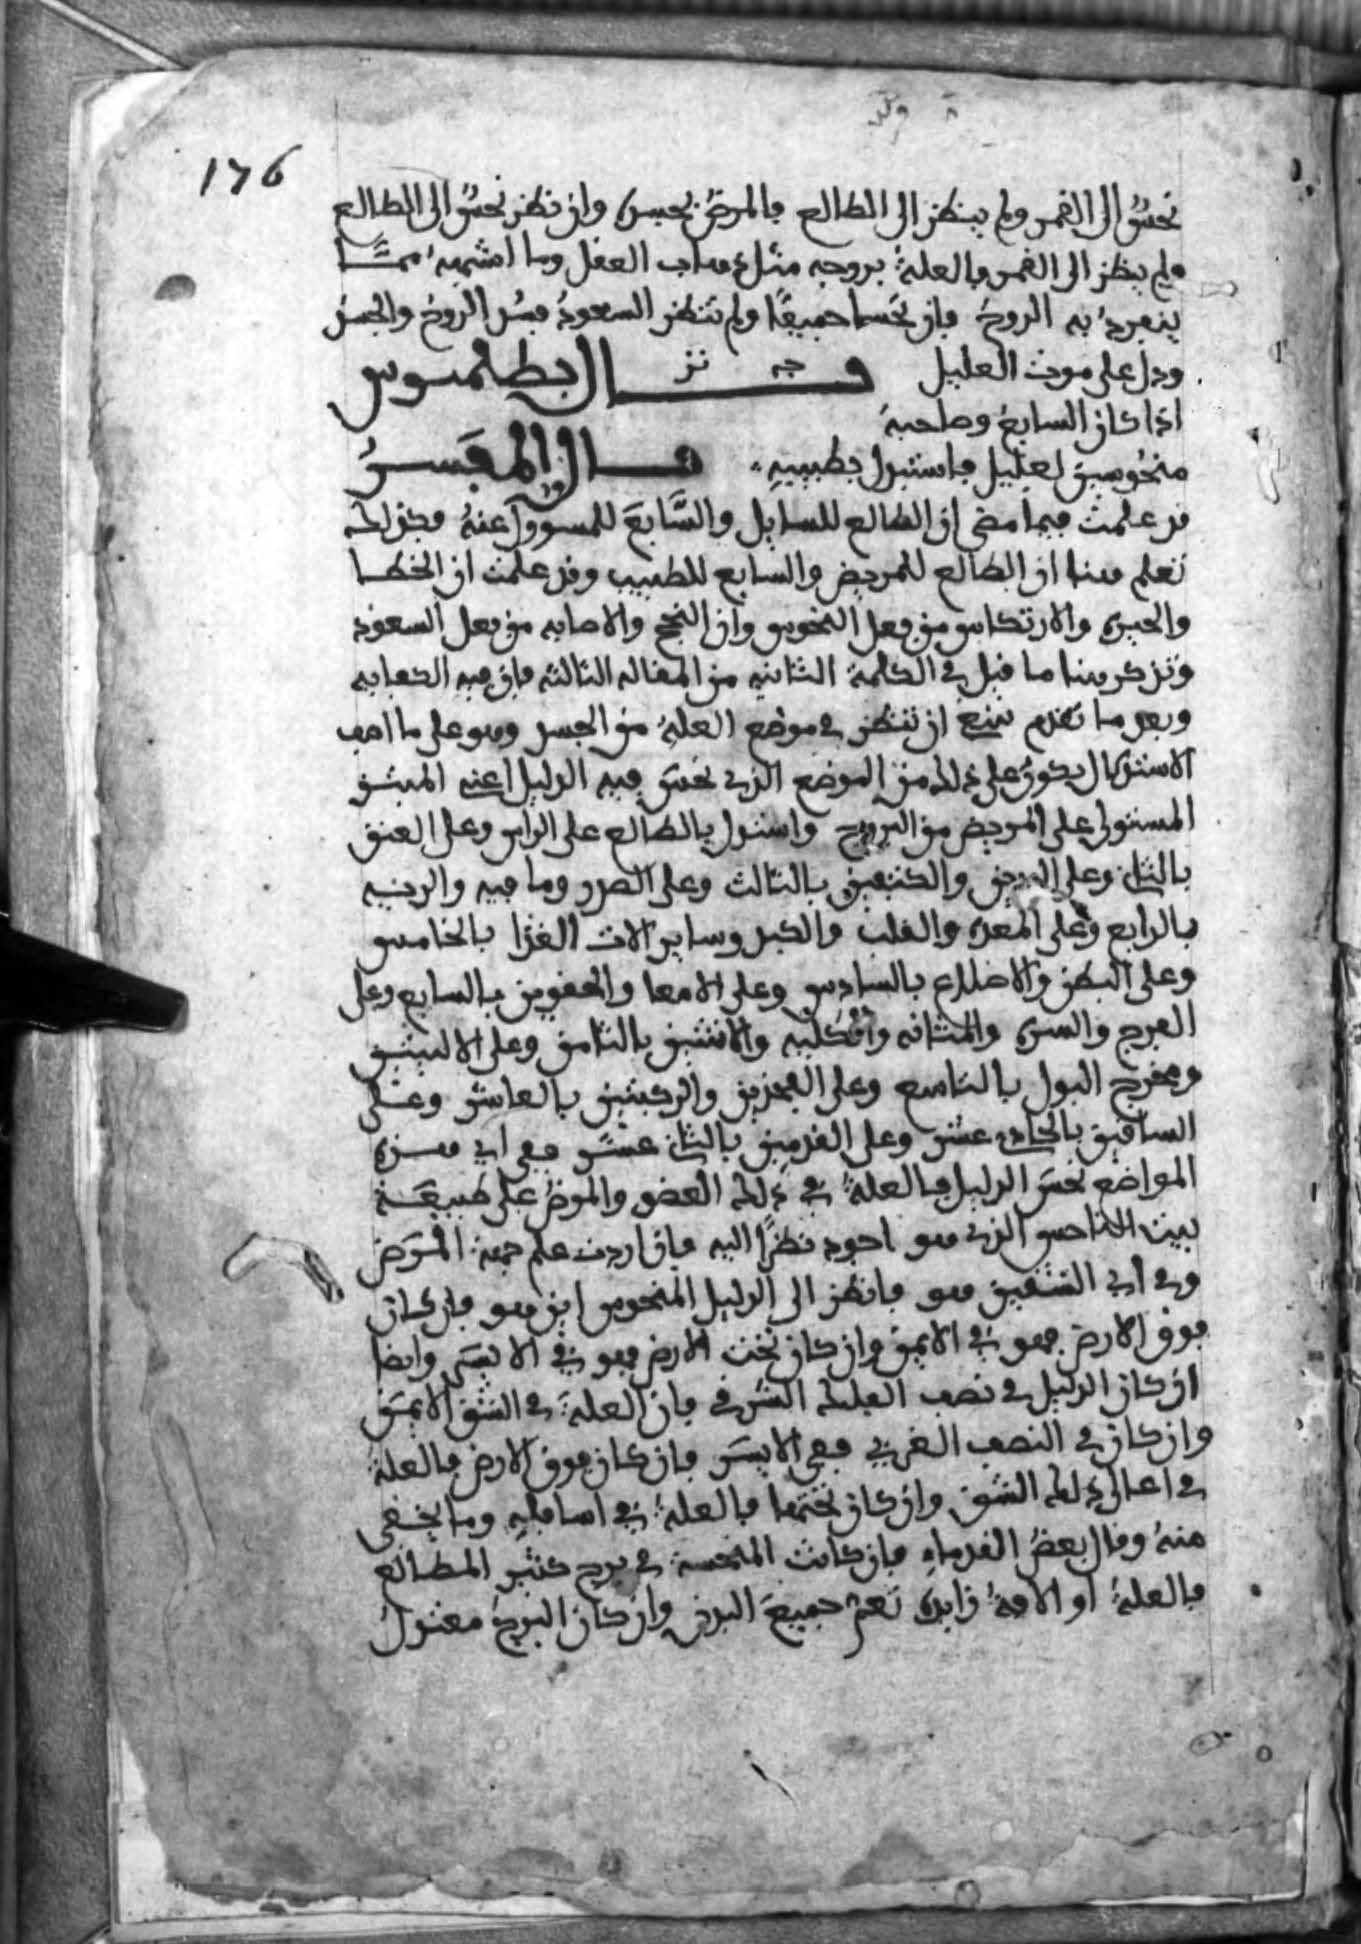 176
نحس الى القمر ولم ينظر الى الطالع فالمرض بجسده وان نظر نحس الى الطالع
ولم ينظر الى القمر فالعلة بروحه مثل ذهاب العقل وما اشبهه مما
ينفرد به الروح فان نحسا جميعا ولم تنظر السعود فسد الروح والجسد
ودل على موت العليل قال بطلميوس
اذا كان السابع وصاحبه
منحوسين لعليل فاستبدل بطبيبه قال المفسر
قد علمت فيما مضى ان الطالع للسايل والسابع للمسوول عنه فكذلك
تعلم هنا ان الطالع للمريض والسابع للطبيب وقد علمت ان الخطا
والحيرة والارتكاس من فعل النحوس وان النجح والاصابه من فعل السعود
وتذكر هنا ما قيل في الكلمة الثانيه من المقاله الثالثه فان فيه الكفايه
وبعد ما تقدم ينبغي ان تنظر في موضع العلة من الجسد وهو على ما اصف
الاستدلال يكون على ذلك من الموضع الذي نحس فيه الدليل اعني المبتز
المستولي على المريض من البروج واستدل بالطالع على الراس وعلى العنق
بالثاني وعلى اليدين والكتفين بالثالث وعلى الصدر وما فيه والريه
بالرابع وعلى المعده والقلب والكبد وساير الات الغذا بالخامس
وعلى البطن والاضلاع بالسادس وعلى الامعا والحقوين بالسابع وعلى
الفرج والسره والمثانه والكليه والانثيين بالثامن وعلى الاليتين
ومخرج البول بالتاسع وعلى الفخذين والركبتين بالعاشر وعلى
الساقين بالحادي عشر وعلى القدمين بالثاني عشر ففي اي هذه
المواضع نحس الدليل فالعلة في ذلك العضو والمرض على طبيعة
بيت الناحس الذي هو اجود نظرا اليه فان اردت علم جهة المرض
وفي اي الشقين هو فانظر الى الدليل المنحوس اين هو فان كان
فوق الارض فهو في الايمن وان كان تحت الارض فهو في الايسر وايضا
ان كان الدليل في نصف الفلك الشرقي فان العلة في الشق الايمن
وان كان في النصف الغربي ففي الايسر فان كان فوق الارض فالعلة
في اعالي ذلك الشق وان كان تحتها فالعلة في اسافله وما يخفى
منه وقال بعض القدماء فان كانت المنحسة في برج كثير المطالع
فالعلة او الافة زايدة تعم جميع البدن وان كان البرج معتدل